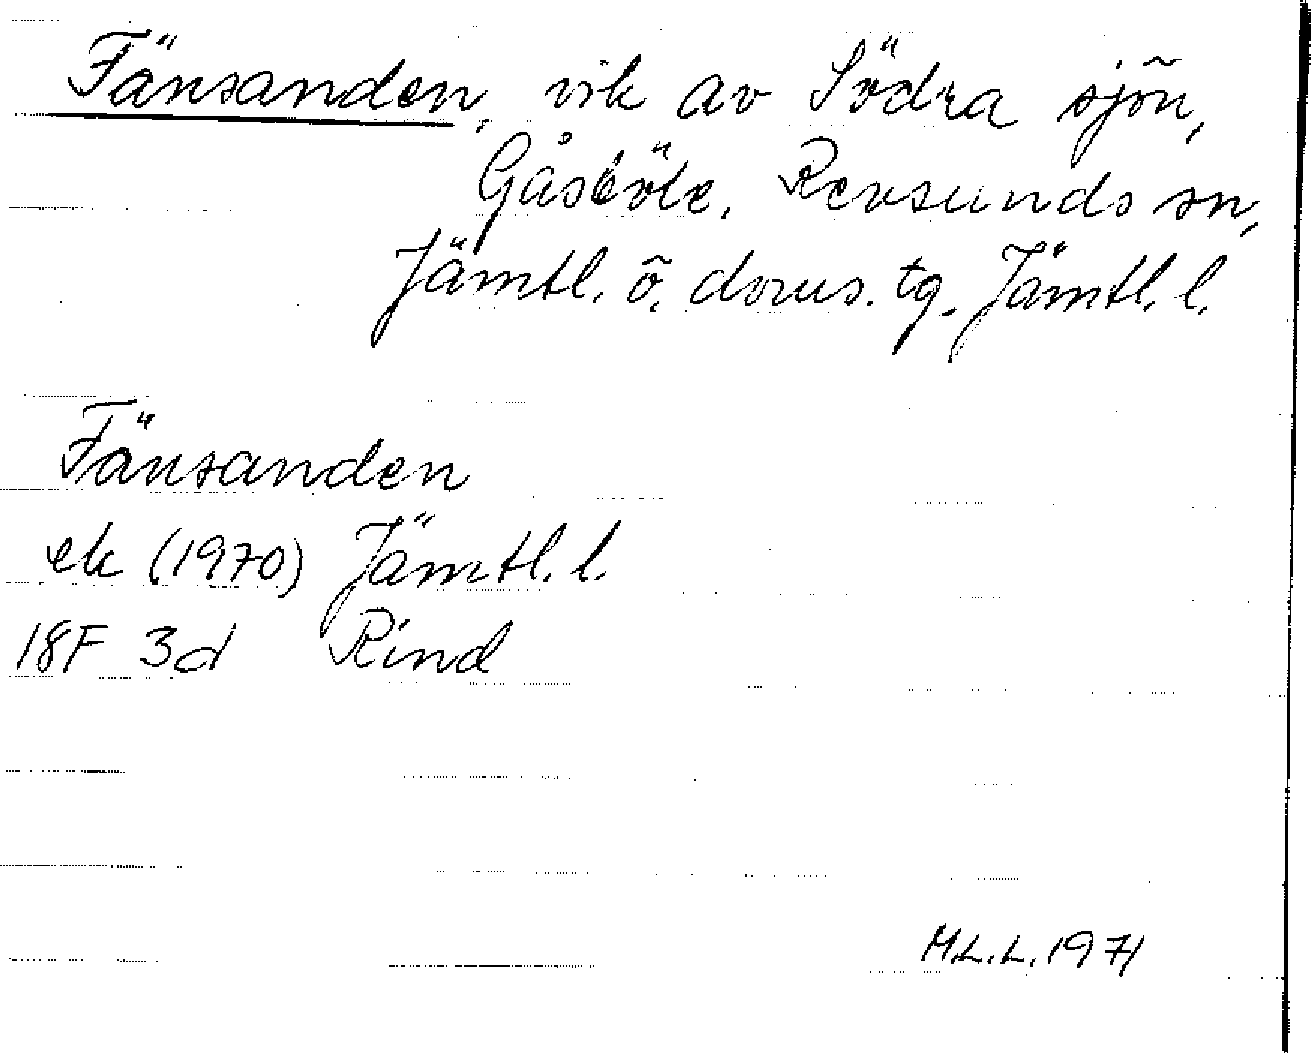 Fänsanden, vik av Södra sjön,
Gåsböle, Revsunds sn,
Jämtl. ö. doms. tg. Jämtl. l.
Fänsanden
ek (1970) Jämtl. l.
18F 3d Rind
M.L.L. 1971